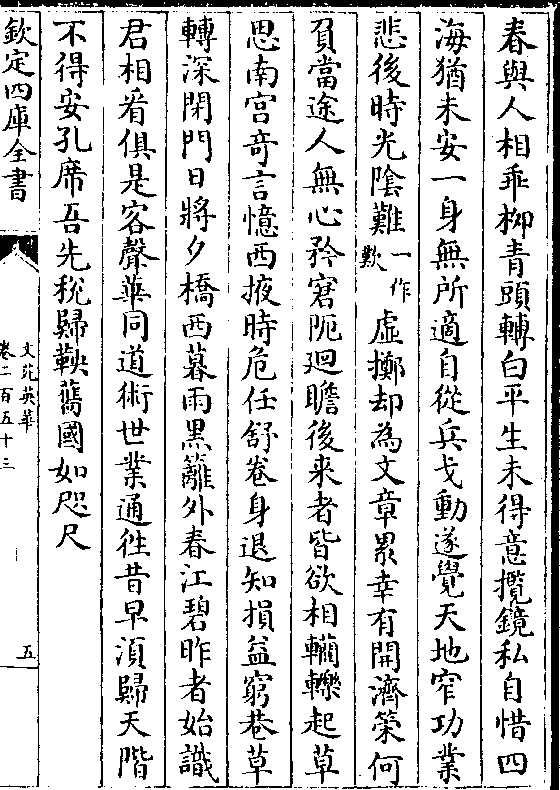 春與人相乖栁青頭轉白平生未得意攬鏡私自惜四
海猶未安一身無所適自從兵戈動遂覺天地窄功業
悲後時光陰難一作歎虛擲却為文章累幸有開濟策何
負當途人無心矜窘阨廻瞻後来者皆欲相轥轢起草
思南宫竒言憶西掖時危任舒卷身退知損益窮巷草
轉深閉門日將夕橋西暮雨黒籬外春江碧昨者始識
君相看俱是客聲華同道術世業通徃昔早湏歸天階
不得安孔席吾先税歸鞅舊國如咫尺
欽定四庫全書
文苑英華
卷二百五十三
五